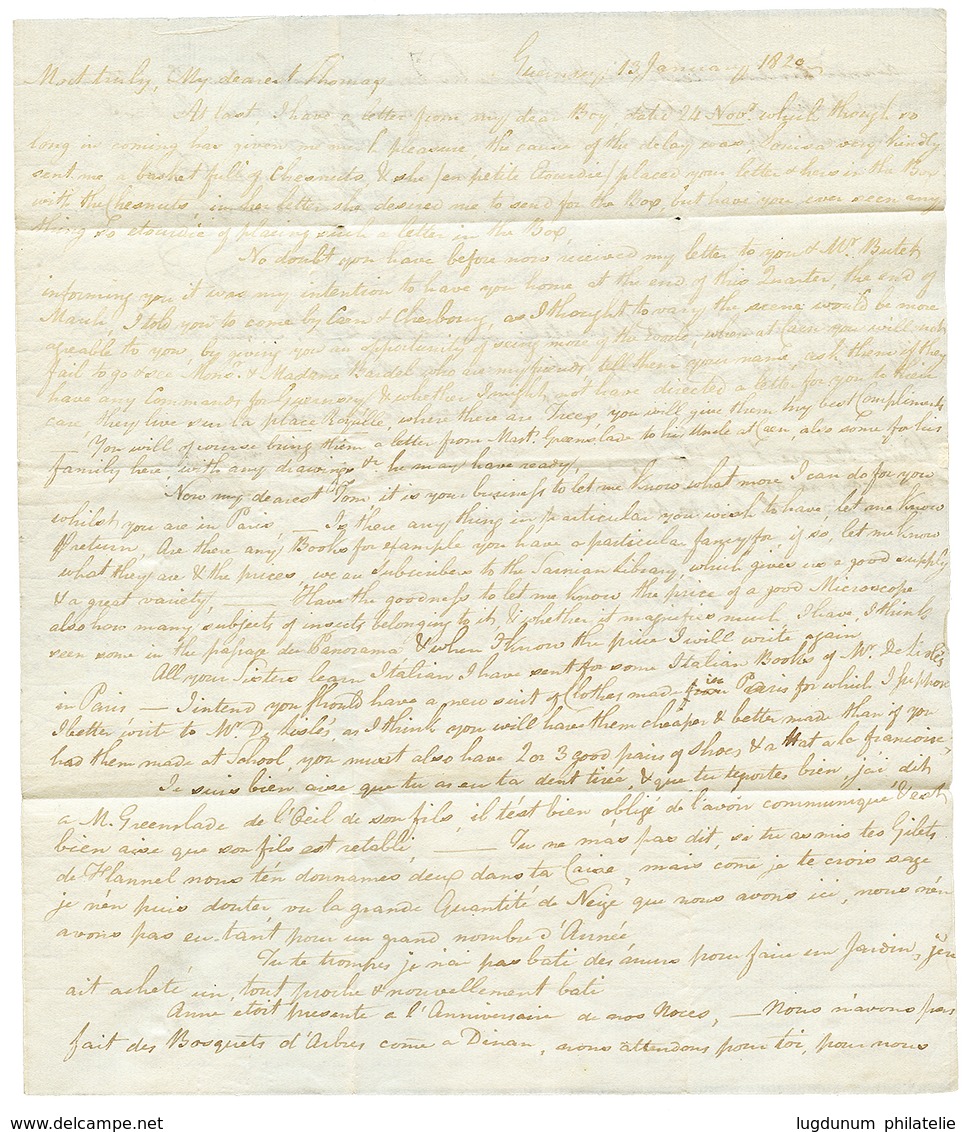 Guernsey 13 January 1820
Most truly, My dearest Thomas
At last I have a letter from my dear Boy date 24 Novr. which though so
long in coming has given me much pleasure, the cause of the delay was, Louisa very kindly
sent me a basket full of Chesnuts, & she (en petite Etourdie) placed your letter & hers in the Box
with the Chesnuts in her letter she desired me to send for the Box, but have you ever seen any
thing so etourdie of placing such a letter in the Box,
No doubt you have before now received my letter to you & Mr. Butel
informing you it was my intention to have you home at the end of this Quarter, the end of
March, I told you to come by Caen & Cherbourg, as I thought to vary the scene would be more
agreable to you, by giving you an opportunity of seeing more of the world, when at Caen you will not
fail to go & see Mons. & Madame Bardel who are my friends tell them your name, ask them if they
have any Commands for Guernsey & whether I might not have directed a letter for you to their
care they live sur la place Royalle, where there are Trees, you will give them my best Compliments
— You will of course bring them a letter from Mast. Greenslade to his Uncle at Caen, also some for his
family here, with any drawings &c he may have ready,
Now my dearest Tom it is your business to let me know what more I can do for you
whilst you are in Paris — Is there any thing in particular you wish to have, let me know
return, Are there any Books for example you have a particular fancy for, if so, let me know
what they are & the prices, we are Subscribers to the Sarnian Library, which gives us a good supply
& a great variety, — Have the goodness to let me know the price of a good Microscope
also how many subjects of insects belonging to it, & whether it magnifies much, I have, I think
seen some in the passage du Panorama & when I know the price I will write again
All your Sisters learn Italian I have sent for some Italian Books of Mr. De Lisle's
in Paris — I intend you should have a new suit of Clothes made in Paris for which I suppose
I better writ to Mr De Lisle's, as I think you will have them cheaper & better made than if you
had them made at School, you must also have 2 or 3 good pairs of shoes & a Hat a la francoise
Je suis bien aise que tu as eu ta dent tirée, & que tu te portes bien, j'ai dit
a M. Greenslade de l'Oeil de son fils, il t'est bien obligé de l'avoir communiqué & est
bien aise que son fils est retabli, — Tu ne m'as pas dit, si tu as mis tes Gilets
de Flannel nous t'en donnames deux dans ta Caise, mais come je te crois sage
je n'en puis douter vu la grande Quantité de Neige que nous avons ici, nous n'en
avons pas eu tant pour un grand nombre d'Année
Tu te trompes je n'ai pas bati des murs pour faire un Jardin, j'en
ait acheté un, tout proche & nouvellement bati
Anne etoit presente a l'Anniversaire de nos Noces, — Nous n'avons pas
fait des Bosquets d'Arbres come a Dinan, nous attendons pour toi, pour nous
delcampe.net
lugdunum philatelie